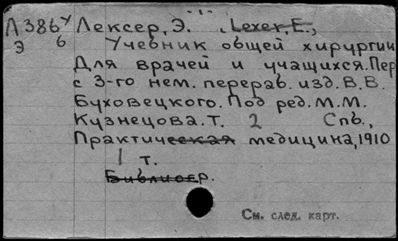 Л386у Лексер, Э. , Lexer, E.,
Э 6 Учебник общей хирургии
Для врачей и учащихся. Пер
с 3-го нем. перераб. изд. В.В.
Буховецкого. Под ред. М.М.
Кузнецова. Т. 2 Спб.,
Практическая медицина, 1910
1 т.
Библиогр.
См. след. карт.